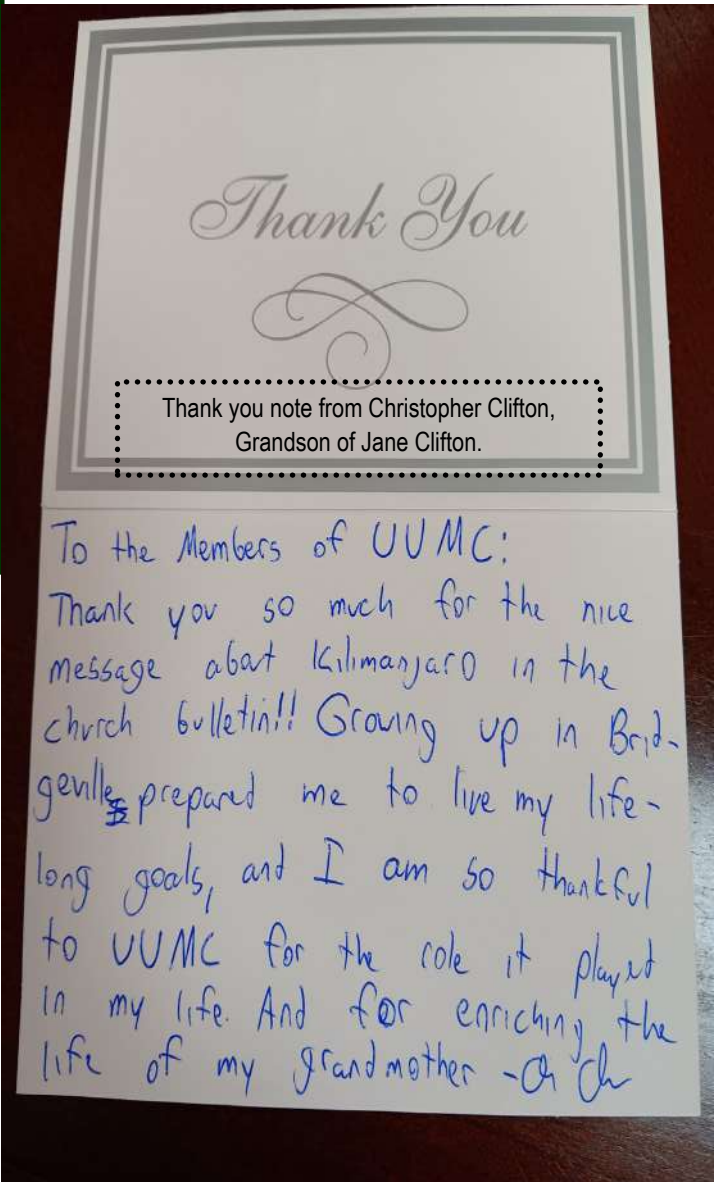 Thank You
Thank you note from Christopher Clifton,
Grandson of Jane Clifton.
To the Members of UUMC:
Thank you so much for the nice
message about Kilimanjaro in the
church bulletin!! Growing up in Brid-
geville prepared me to live my life-
long goals, and I am so thankful
to UUMC for the role it played
in my life. And for enriching the
life of my grandmother -